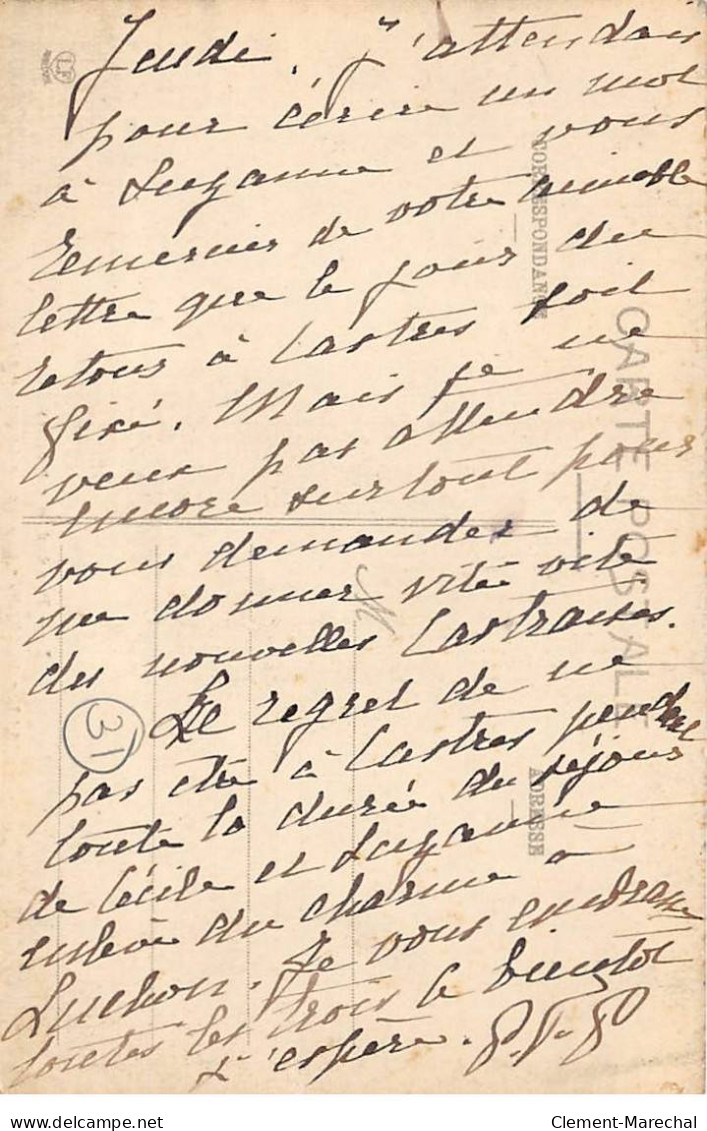 Jeudi. J'attendais
pour écrire un mot
à Suzanne et vous
remercier de votre aimable
lettre que le jour du
retour à Castres soit
fixé. Mais je ne
veux pas attendre
encore surtout pour
vous demander de
me donner vite vite
des nouvelles Castraises.
Le regret de ne
pas être à Castres pendant
toute la durée du séjour
de Cécile et Suzanne
enlève du charme à
Luchon. Je vous embrasse
toutes les trois à bientôt
j'espère.
31
M
CARTE POSTALE
CORRESPONDANCE
ADRESSE
delcampe.net
Clement-Marechal